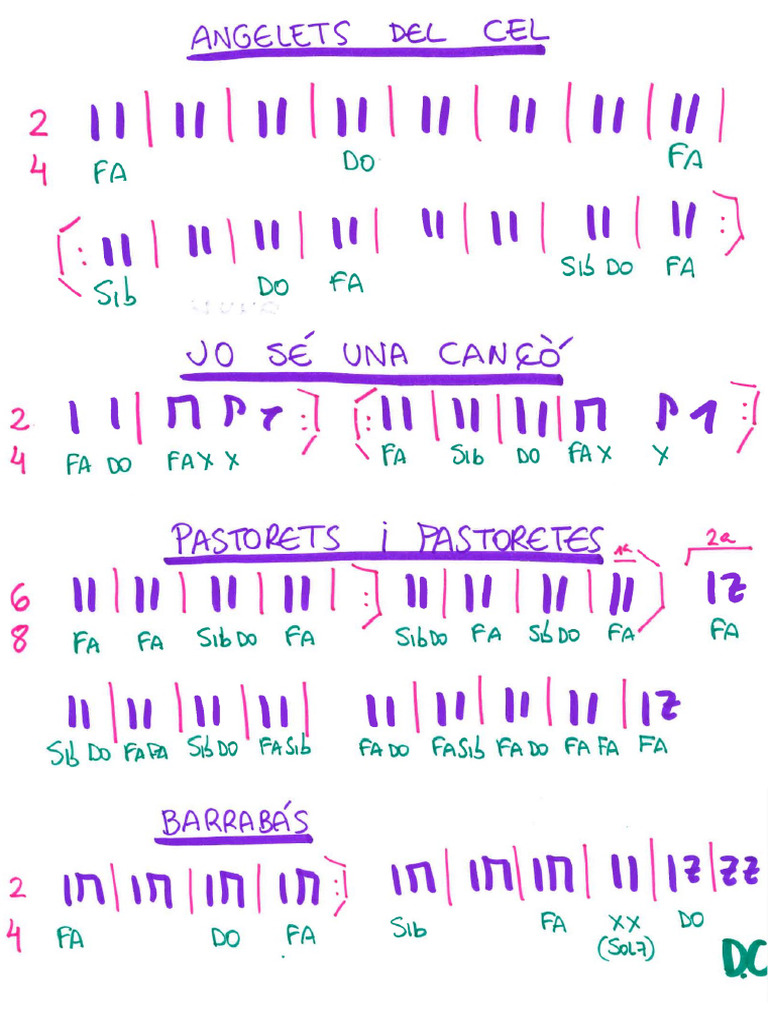 ANGELETS DEL CEL
2
4
FA DO FA
Sib DO FA Sib DO FA
JO SÉ UNA CANÇÒ
2
4
FA DO FA X X FA Sib DO FA X X
PASTORETS i PASTORETES
1a 2a
6
8
FA FA Sib DO FA Sib DO FA Sib DO FA FA
Sib DO FA FA Sib DO FA Sib FA DO FA Sib FA DO FA FA FA
BARRABÁS
2
4
FA DO FA Sib FA XX DO
(SOL7)
D.C